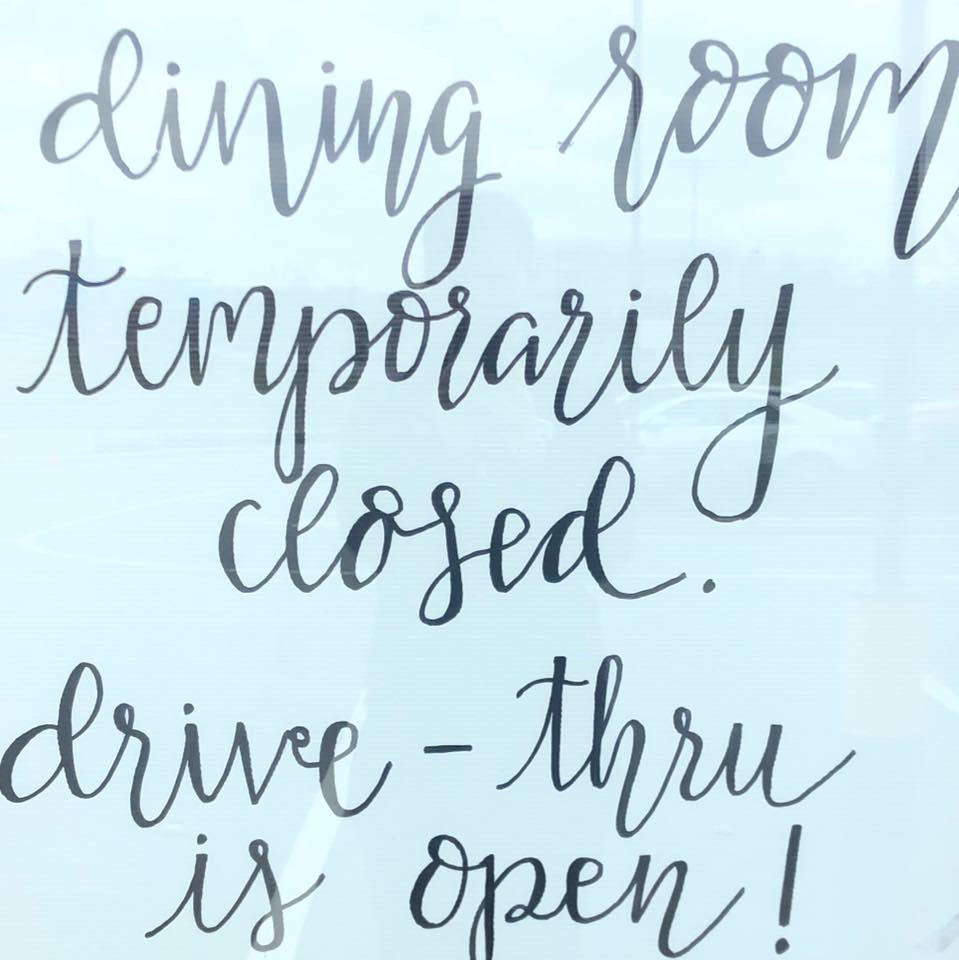 dining room
temporarily
closed.
drive-thru
is open!